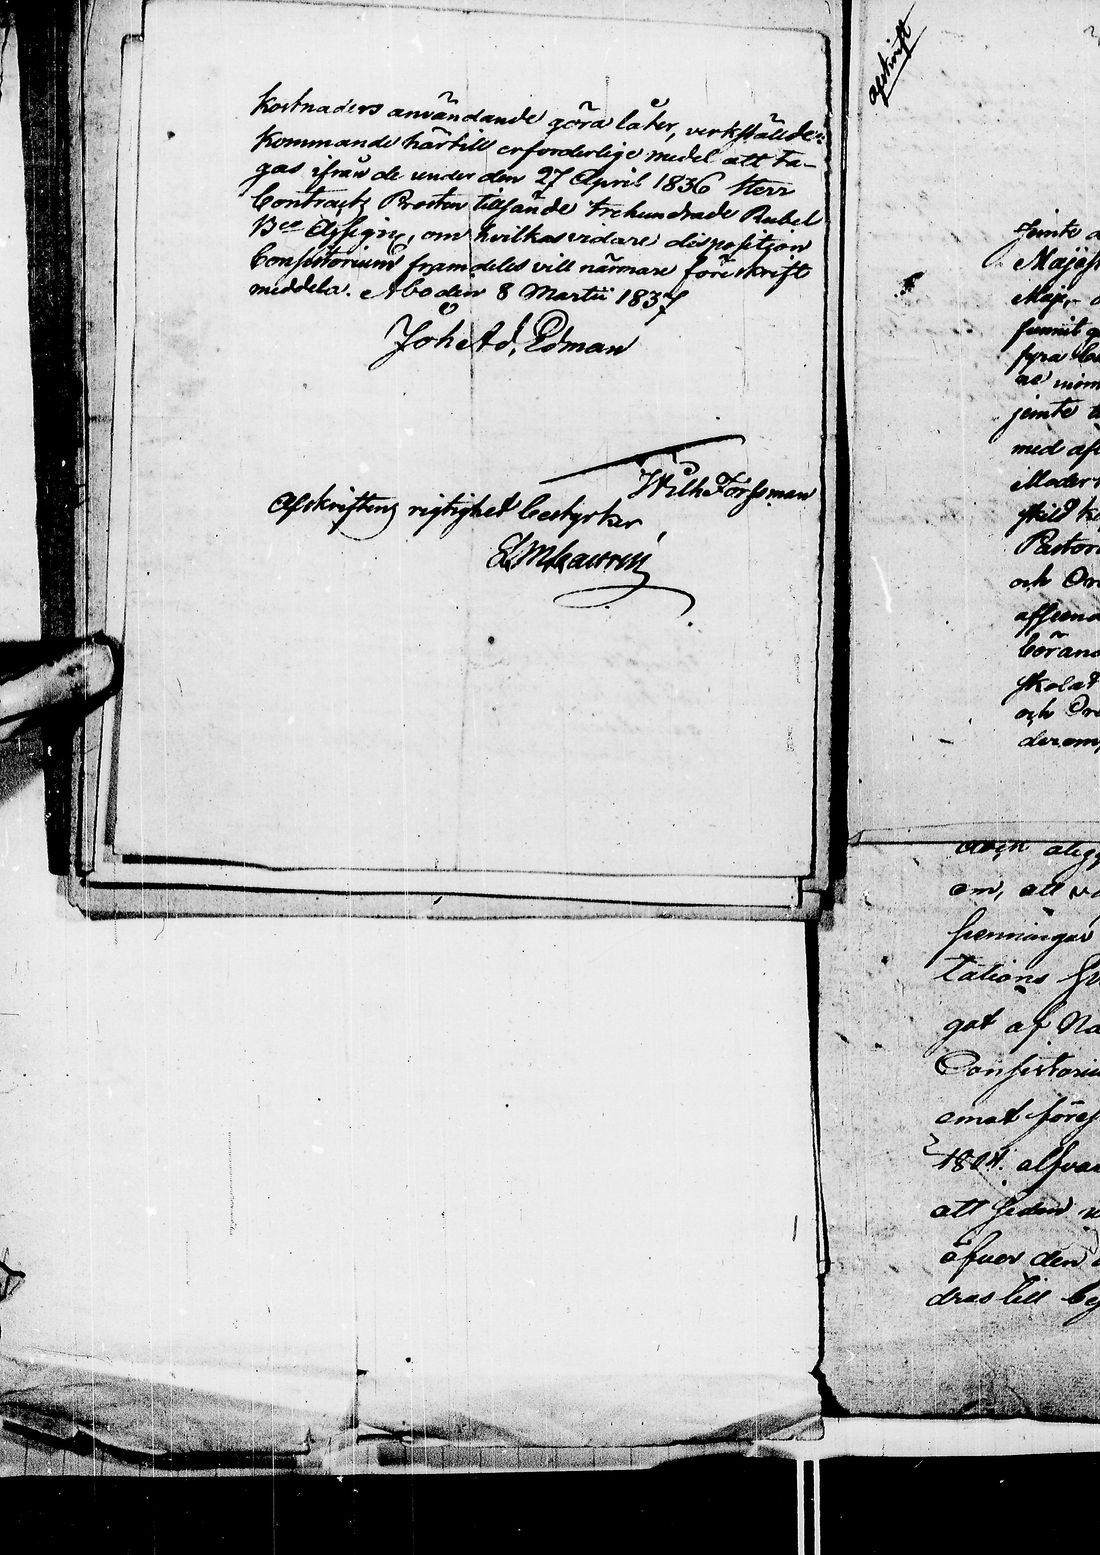 kostnaders användande göra låter, verkställde:
kommande härtill erforderlige medel att ta-
gas ifrån de under den 27 April 1836 Herr
Contracts Prosten tillsände trehundrade Rubel
Bco Assigne, om hvilkas vidare disposition
Consistorium framdeles vill närmare föreskrift
meddela. Åbo den 8 Martii 1837
Joh Ad. Edman
Wilh Forssman
Afskriftens rigtighet bestyrker
afskrift
Jemte
Majest
Maj:
funnit
fyra
jemte
med
Moder
skild
Pastor
och
börand
skolat
och
derom
även
om, att
penningar
tations
gat af
Consistoriu
emot föres
1804. alfva
att sedan
öfver den
dras till